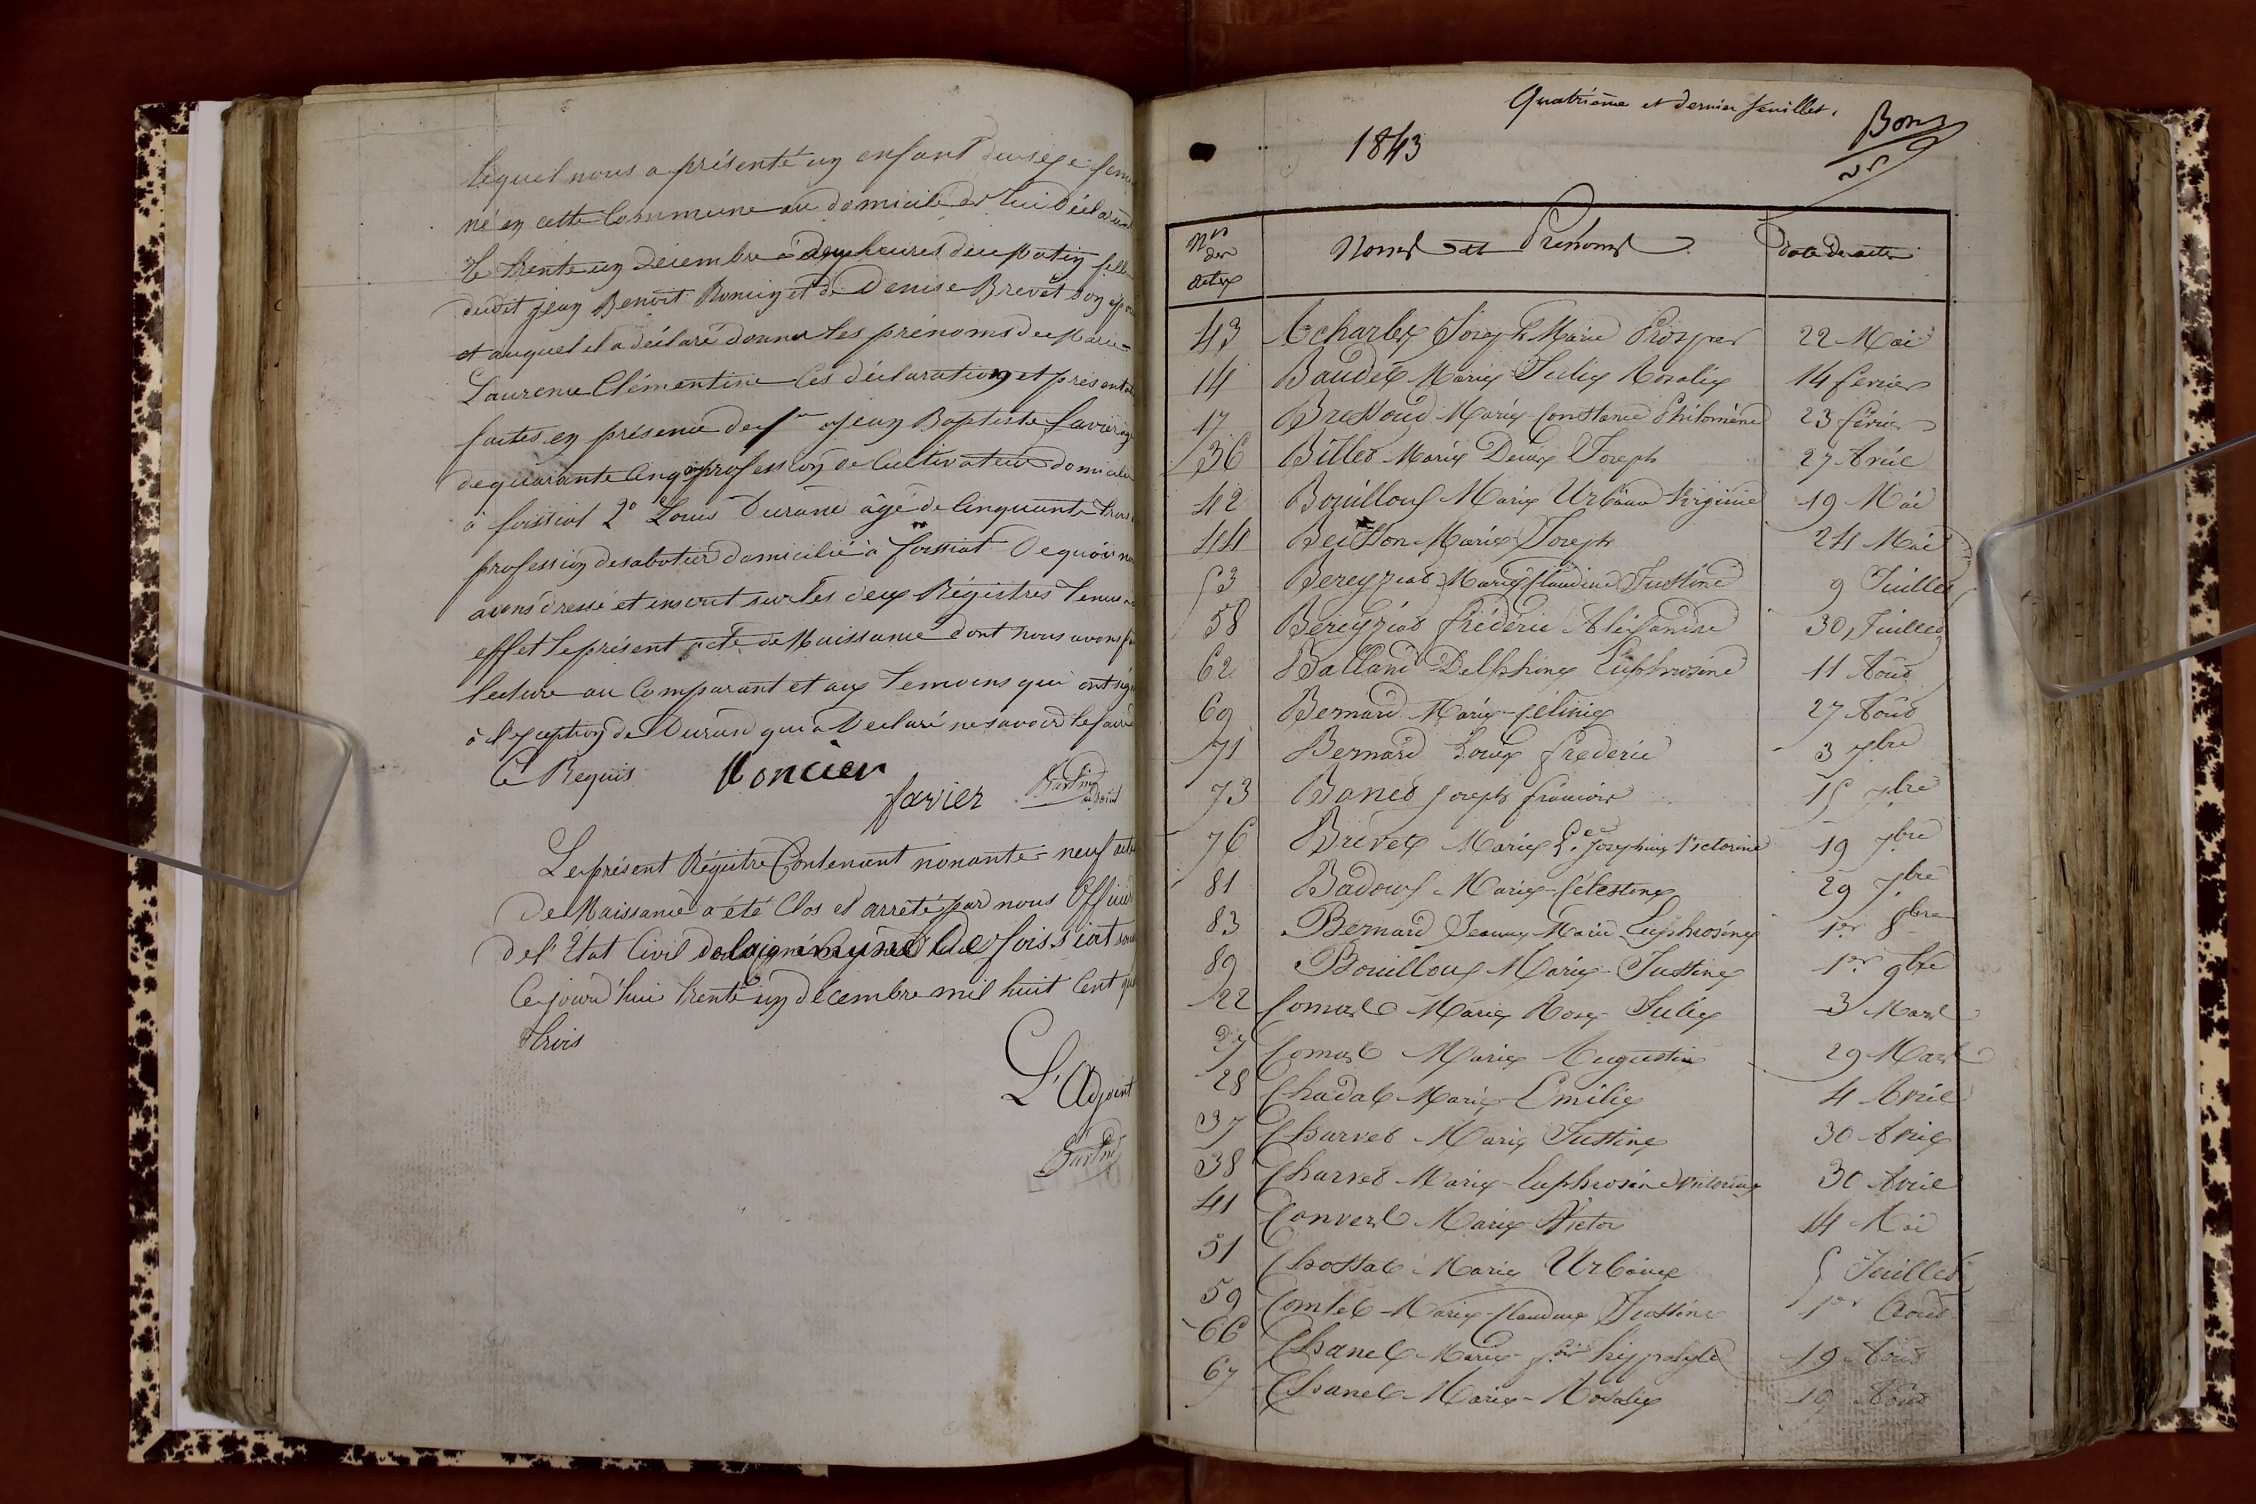 lequel nous a présenté un enfant du sexe fem
né en cette Commune au domicile de lui déclarant
le trente un décembre à deux heures du Matin fille
dudit jean Benoit Roncin et de Denise Brevet son épo
et auquel il a déclaré donner les prénoms de Marie
Laurence Clémentine Ces déclaration et présentat
faites en présence de 1° jean Baptiste favier âgé
de quarante cinq profession de Cultivateur domicilié
à foissiat 2° Louis Durand âgé de Cinquante trois
profession de sabotier domicilié à foissiat De quoi n
avons dressé et inscrit sur les deux Régistres tenus
effet le présent acte de Naissance dont nous avons
lecture au Comparant et aux témoins qui ont sig
à l'exception de Durand qui a Déclaré ne savoir le faire
Ce Requis Roncien
favier
adjoint
Le présent Régistre Contenant nonante-neuf actes
De Naissance a été Clos et arrêté par nous Officier
de l'Etat Civil de la commune de foissiat
Ce jourd'hui trente un décembre mil huit Cent qua
trois
L'Adjoint
Quatrième et dernier feuillet.
1843
Nos des actes Noms et Prénoms date de actes
43 Acharles Joseph Marie Prosper 22 Mai
14 Baudet Marie Julie Rosalie 14 fevrier
17 Bressoud Marie Constance Philomène 23 févrie
36 Billet Marie Denis Joseph 27 Avril
42 Bouilloux Marie Urbain Virginie 19 Mai
44 Buisson Marie Joseph 24 Mai
53 Bereyziat Marie Claudine Justine 9 Juillet
58 Bereyziat fréderic Aléxandre 30 Juillet
62 Balland Delphine Euphrosine 11 Août
69 Bernard Marie-Célinie 27 Août
71 Bernard Louis frederic 3 7bre
73 Bonet Joseph françois 15 7bre
76 Brevet Marie Josephine Victorine 19 7bre
81 Badoux Marie-Célestine 29 7bre
83 Bernard Jeanne Marie Euphrosine 1er 8bre
89 Bouilloux Marie-Justine 1er 9bre
22 Comas Marie Rose Julie 3 Mars
27 Comas Marie Augustin 29 Mars
28 Chadal Marie Emilie 4 Avril
37 Charvet Marie Justine 30 Avril
38 Charvet Marie-Euphrosine Victorine 30 Avril
41 Convert Marie Victor 14 Mai
51 Chossat Marie Urbain 5 Juillet
59 Comtet Marie-Claudine Justine 1er Août
66 Chanel Marie hippolyte 19 Août
67 Chanel Marie-Rosalie 19 Août